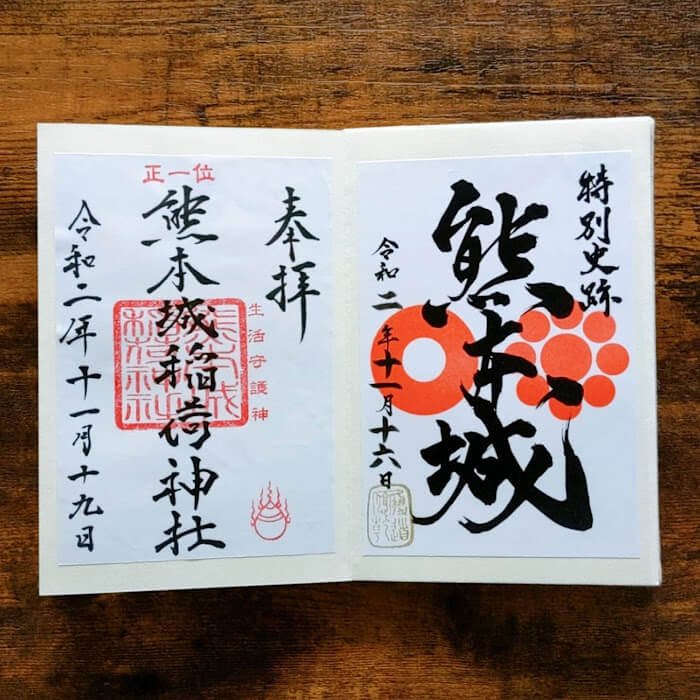 特別史跡
熊本城
令和二年十一月十六日
奉拝
生活守護神
正一位
熊本城稲荷神社
令和二年十一月十九日